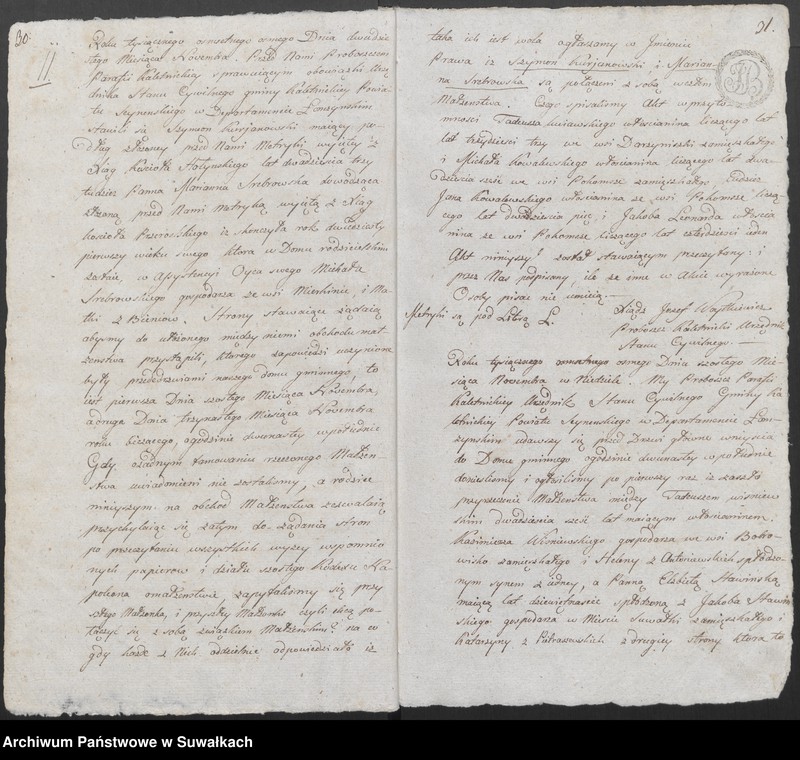 30.
11
Roku tysiącznego osmsetnego osmego Dnia dwudzie
stego Miesiąca Novembra. Przed Nami Proboszczem
Parafii Kaletnickiey sprawuiącym obowiązki Urzę
dnika Stanu Cywilnego gminy Kaletnickiey Powia
tu Seynenskiego w Departamencie Łomżyńskim
stawili się Szymon Kurjanowski maiący po-
dług złożoney przed Nami Metryki wyięty z
Xiąg Kościoła lat dwadzieścia trzy
tudzież Panna Marianna Srebrowska dowodząca
złożoną przed Nami Metryką wyiętą z Xiąg
kościoła iż skończyła rok dwudziesty
pierwszy wieku swego która w Domu rodzicielskim
zostaie, w Assystencyi Oyca swego Michała
Srebrowskiego gospodarza ze wsi i Ma
tki z Strony stawaiące żądaią
abysmy do ułożonego między niemi obchodu mał
żeństwa przystąpili, którego zapowiedzi uczynione
były przededrzwiami naszego domu gminnego, to
iest pierwsza Dnia szóstego Miesiąca Novembra,
a druga Dnia trzynastego Miesiąca Novembra
roku bieżącego, o godzinie dwunastey w południe
Gdy o żadnym tamowaniu rzeczonego Małżeń-
stwa uwiadomieni nie zostaliśmy, a rodzice
ninieyszym na obchód Małżeństwa zezwalaią
przychylaiąc się zatym do żądania stron
po przeczytaniu wszystkich wyżey wspomnio
nych papierów i działu szóstego Kodexu Na
poleona o małżeństwie, zapytaliśmy się przy
szłego Małżonka, i przyszłey Małżonki czyli chcą po
łączyć się z sobą związkiem Małżeńskim? na co
gdy każde z Nich oddzielnie odpowiedziało iż
31.
taka ich iest wola ogłaszamy w Jmieniu
Prawa iż Szymon Kurjanowski i Marian-
na Srebrowska są połączeni z sobą węzłem
Małżeństwa. Czego spisaliśmy Akt w przyto
mności Tadeusza włościanina liczącego lat
lat trzydzieści trzy we wsi zamieszkałego
i Michała Kowalewskiego włościanina liczącego lat dwa
dzieścia sześć we wsi Pokomsze zamieszkałego tudzież
Jana Kowalewskiego włościanina ze wsi Pokomsze liczą
cego lat dwadzieścia pięć i Jakoba Leonarda włościa
nina ze wsi Pokomsze liczącego lat czterdzieści ieden
Akt ninieyszy został stawaiącym przeczytany i
przez Nas podpisany, ile że inne w Akcie wyrażone
Osoby pisać nie umieią.
Metryki są pod Literą L.
Xiądz Jozef Woytkiewicz
Proboszcz Kaletnicki Urzędnik
Stanu Cywilnego.
Roku tysiącznego osmsetnego osmego Dnia szóstego Mie-
siąca Novembra w Niedzielę. My Proboszcz Parafii
Kaletnickiey Urzędnik Stanu Cywilnego Gminy Ka
letnickiey Powiatu Seynenskiego w Departamencie Łom-
żyńskim udawszy się przed Drzwi główne wniyścia
do Domu gminnego o godzinie dwunastey w południe
doniesliśmy i ogłosiliśmy po pierwszy raz iż zaszło
przyrzeczenie Małżeństwa między Tadeuszem Wiśniew
skim dwadzieścia sześć lat maiącym włościaninem
Kazimierza Wiśniewskiego gospodarza we wsi
zamieszkałego i Heleny z Antoniewskich spłodzo-
nym synem z iedney, a Panną Elżbietą Sławińską
maiącą lat dziewiętnaście spłodzoną z Jakoba Sławiń
skiego gospodarza w Mieście Suwałki zamieszkałego i
Katarzyny z z drugiey strony która to
Archiwum Państwowe w Suwałkach